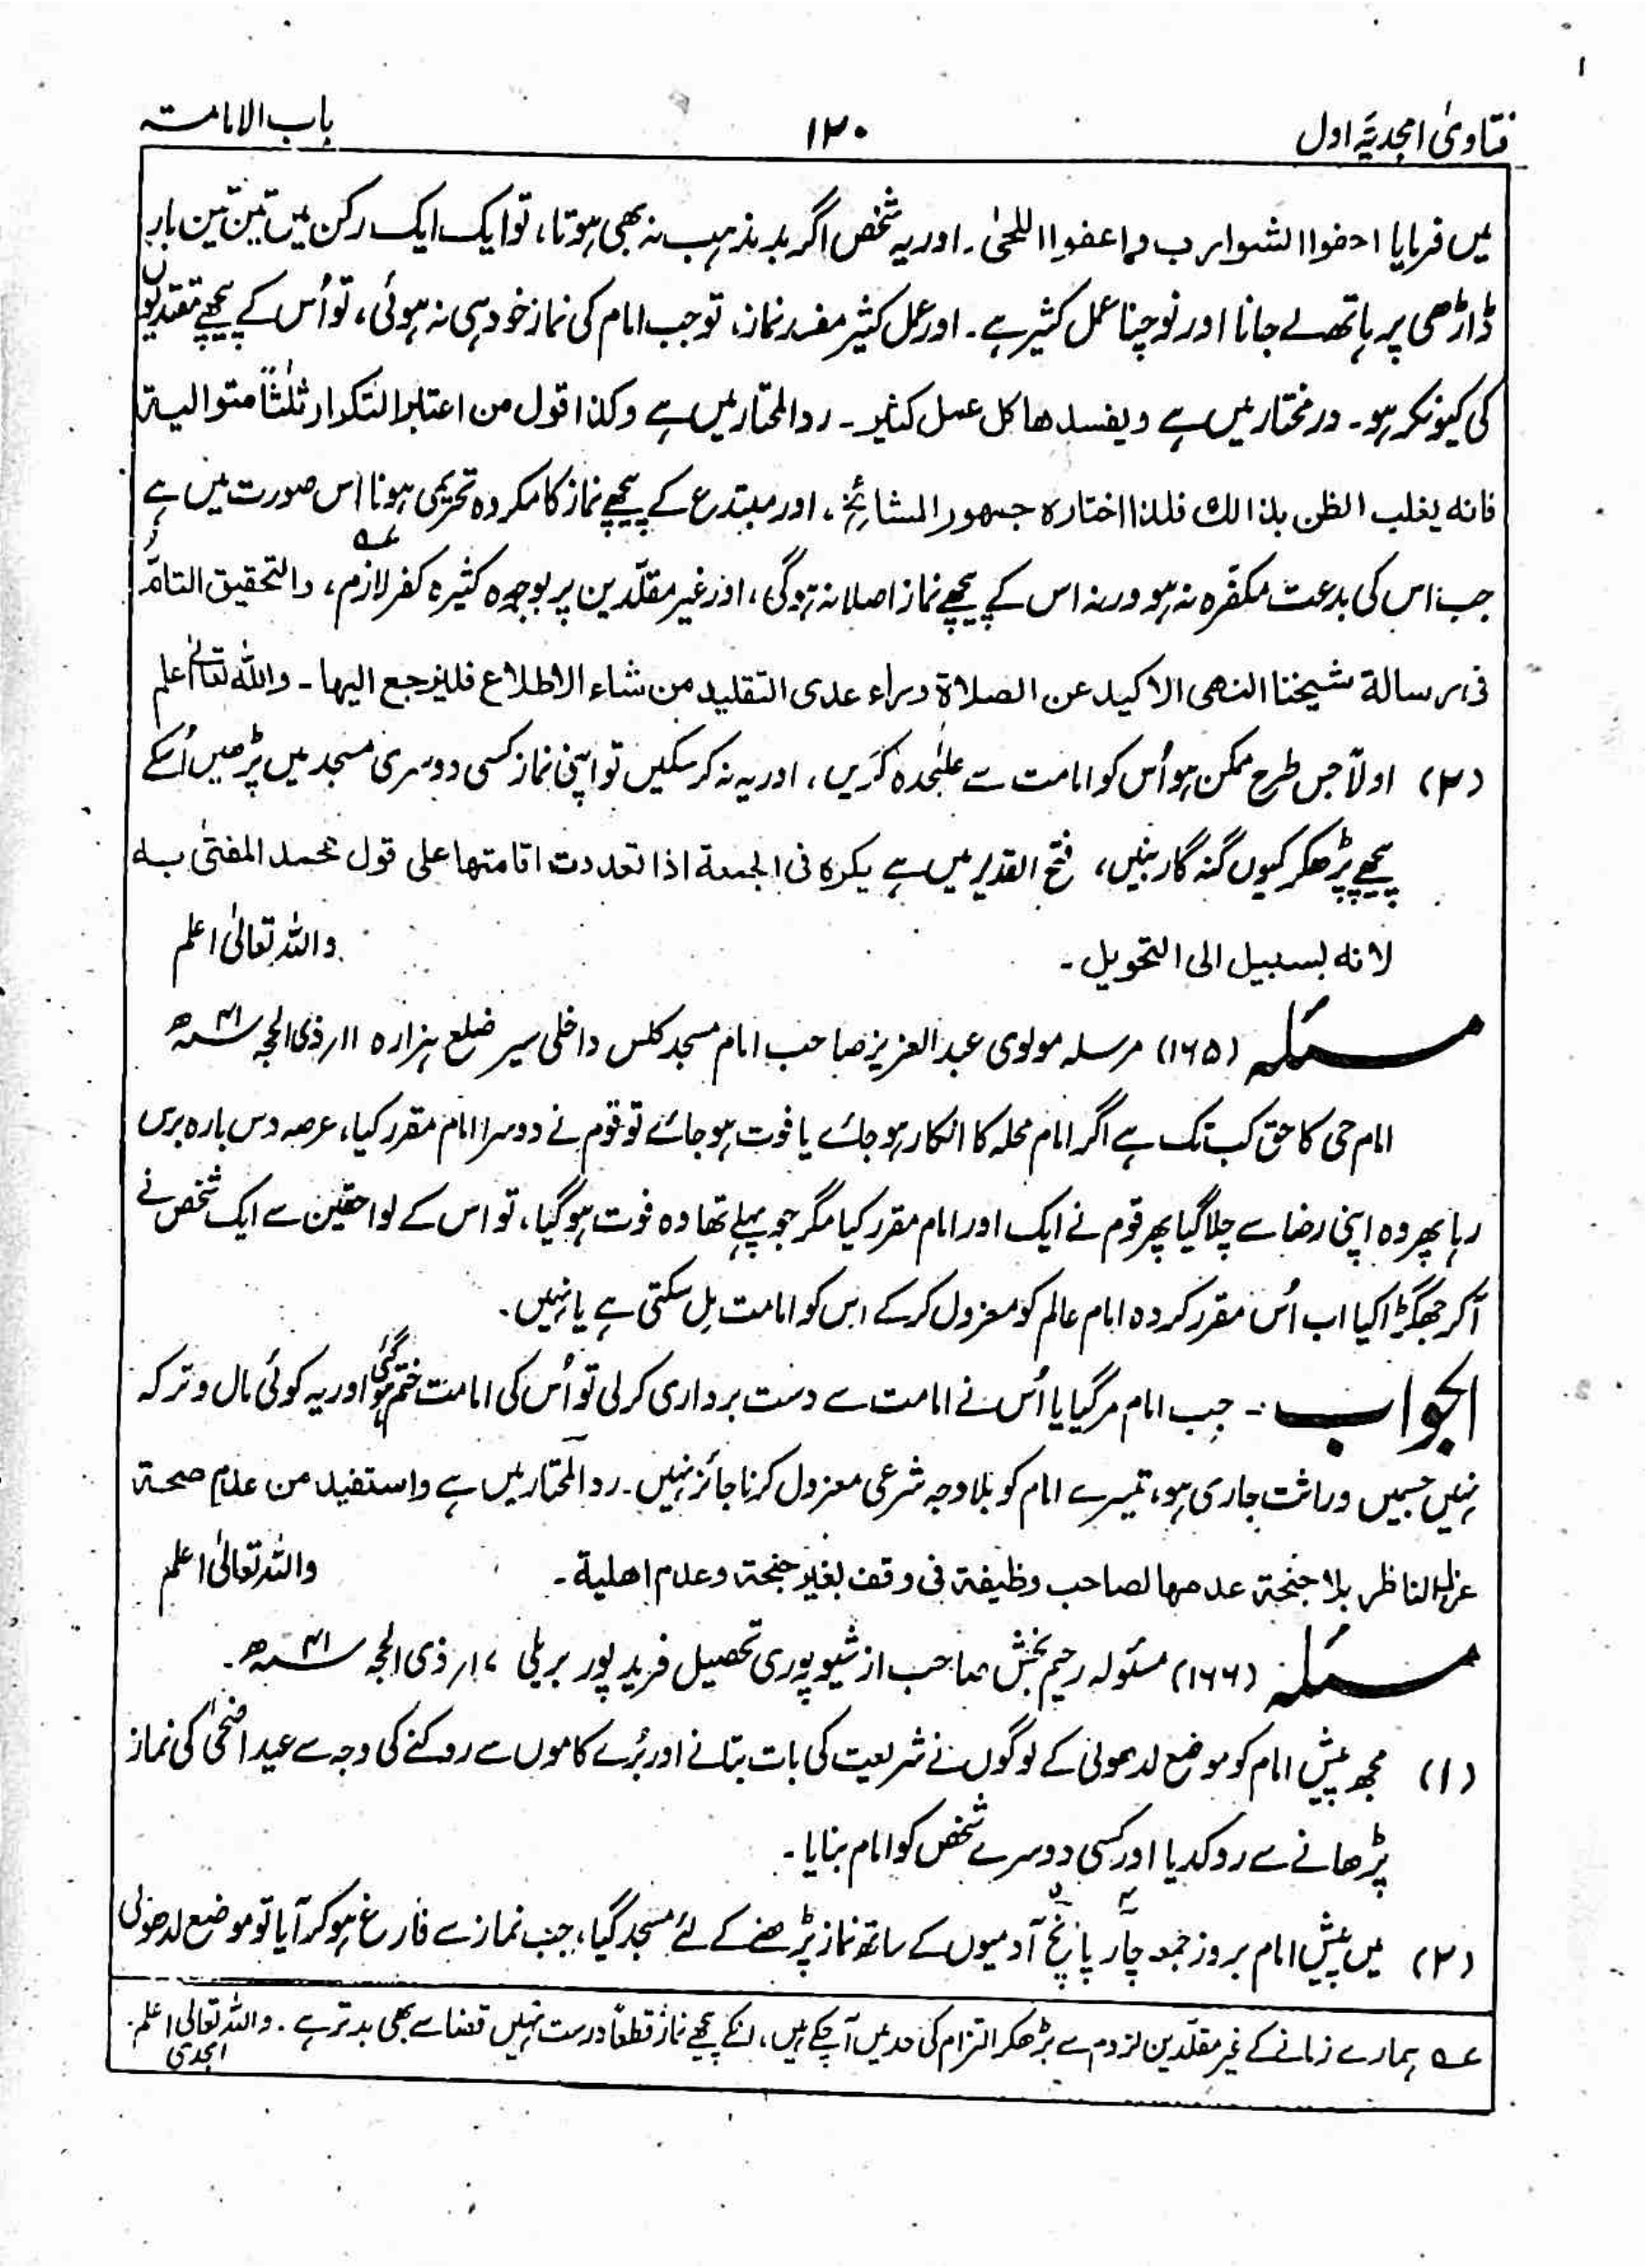 فتاویٰ امجدیہ اول ۱۲۰ باب الامامۃ
میں فرمایا احفوا الشوارب واعفوا اللحیٰ۔ اور یہ شخص اگر بدمذہب نہ بھی ہوتا، تو ایک ایک رکن میں تین تین بار
ڈاڑھی پر ہاتھ لے جانا اور نوچنا عمل کثیر ہے۔ اور عمل کثیر مفسد نماز، تو جب امام کی نماز خود ہی نہ ہوئی، تو اُس کے پیچھے مقتدیوں
کی کیونکر ہو۔ درمختار میں ہے ویفسدھا کل عمل کثیر۔ ردالمحتار میں ہے وکذا قول من اعتبر التکرار ثلٰثاً متوالیۃ
فانه یغلب الظن بذالك فلذا اختارہ جمہور المشائخ، اور مبتدع کے پیچھے نماز کا مکروہ تحریمی ہونا اس صورت میں ہے
جب اس کی بدعت مکفّرہ نہ ہو ورنہ اس کے پیچھے نماز اصلا نہ ہوگی، اور غیر مقلّدین پر بوجوہ کثیرہ کفر لازم عہ، والتحقیق التام
فی رسالة شیخنا النھی الاکید عن الصلاۃ وراء عدی التقلید من شاء الاطلاع فلیرجع الیھا۔ واللہ تعالیٰ اعلم
(۲) اولاً جس طرح ممکن ہو اُس کو امامت سے علیٰحدہ کریں، اور یہ نہ کرسکیں تو اپنی نماز کسی دوسری مسجد میں پڑھیں اُسکے
پیچھے پڑھکر کیوں گنہ گار بنیں، فتح القدیر میں ہے یکرہ فی الجمعة اذا تعددت اقامتھا علی قول محمد المفتیٰ به
لانه بسبیل الی التحویل۔ واللہ تعالیٰ اعلم
مسئلہ (۱۶۵) مرسلہ مولوی عبدالعزیز صاحب امام مسجد کلس داخلی سیر ضلع ہزارہ ۱۱ر ذی الحجہ سنہ ۴۱ھ
امام حی کا حق کب تک ہے اگر امام محلہ کا انکار ہوجائے یا فوت ہوجائے تو قوم نے دوسرا امام مقرر کیا، عرصہ دس بارہ برس
رہا پھر وہ اپنی رضا سے چلا گیا پھر قوم نے ایک اور امام مقرر کیا مگر جو پہلے تھا وہ فوت ہوگیا، تو اس کے لواحقین سے ایک شخص نے
آکر جھگڑا کیا اب اُس مقرر کردہ امام عالم کو معزول کرکے اس کو امامت مل سکتی ہے یا نہیں۔
الجواب:- جب امام مرگیا یا اُس نے امامت سے دست برداری کرلی تو اُس کی امامت ختم ہوگئی اور یہ کوئی مال و ترکہ
نہیں جسمیں وراثت جاری ہو، تیسرے امام کو بلا وجہ شرعی معزول کرنا جائز نہیں۔ ردالمحتار میں ہے واستفید من عدم صحة
عزل الناظر بلا جنحة عدمها لصاحب وظیفة فی وقف بغیر جنحة وعدم اھلیة۔ واللہ تعالیٰ اعلم
مسئلہ (۱۶۶) مسئولہ رحیم بخش صاحب از شیوپوری تحصیل فریدپور بریلی ۱۷ر ذی الحجہ سنہ ۴۱ھ۔
(۱) مجھ پیش امام کو موضع لدھولی کے لوگوں نے شریعت کی بات بتانے اور بُرے کاموں سے روکنے کی وجہ سے عید اضحیٰ کی نماز
پڑھانے سے روکدیا اور کسی دوسرے شخص کو امام بنایا۔
(۲) میں پیش امام بروز جمعہ چار پانچ آدمیوں کے ساتھ نماز پڑھنے کے لئے مسجد گیا، جب نماز سے فارغ ہوکر آیا تو موضع لدھولی
عہ ہمارے زمانے کے غیر مقلّدین لزوم سے بڑھکر التزام کی حد میں آچکے ہیں، انکے پیچھے نماز قطعاً درست نہیں قضا سے بھی بدتر ہے۔ واللہ تعالیٰ اعلم۔
امجدی